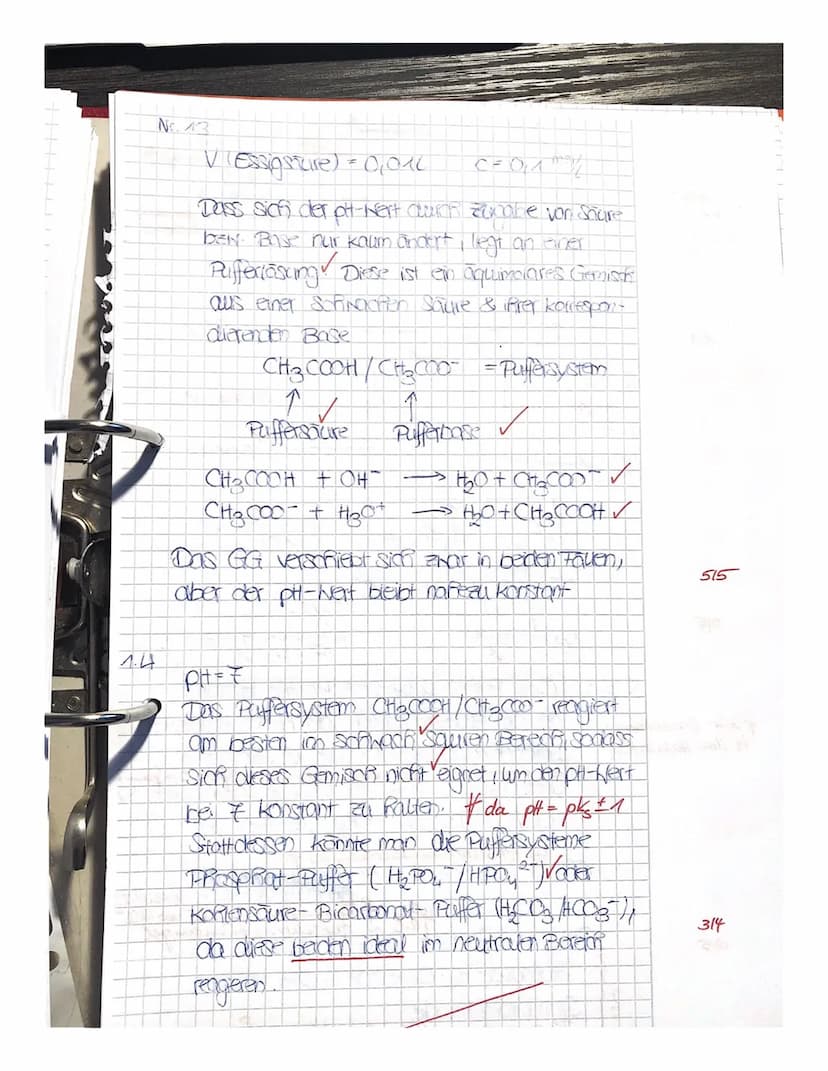 Nr. 13
V (Essigsäure) = 0,01L c = 0,1 mol/L
Dass sich der pH-Wert durch Zugabe von Säure
bzw. Base nur kaum ändert, liegt an einer
Pufferlösung ✓ Diese ist ein äquimolares Gemisch
aus einer schwachen Säure & ihrer korrespon-
dierenden Base
CH₃COOH / CH₃COO⁻ = Puffersystem
↑ ✓ ↑
Puffersäure Pufferbase ✓
CH₃COOH + OH⁻ → H₂O + CH₃COO⁻ ✓
CH₃COO⁻ + H₃O⁺ → H₂O + CH₃COOH ✓
Das GG verschiebt sich zwar in beiden Fällen,
aber der pH-Wert bleibt nahezu konstant
5/5
1.4
pH = 7
Das Puffersystem CH₃COOH/CH₃COO⁻ reagiert
am besten im schwach ✓ sauren Bereich, sodass
sich dieses Gemisch nicht ✓ eignet, um den pH-Wert
bei 7 konstant zu halten. # da pH = pks ± 1
Stattdessen könnte man die Puffersysteme
Phosphat-Puffer (H₂PO₄⁻/HPO₄²⁻) ✓ oder
Kohlensäure-Bicarbonat-Puffer (H₂CO₃/HCO₃⁻),
3/4
da diese beiden ideal im neutralen Bereich
reagieren.